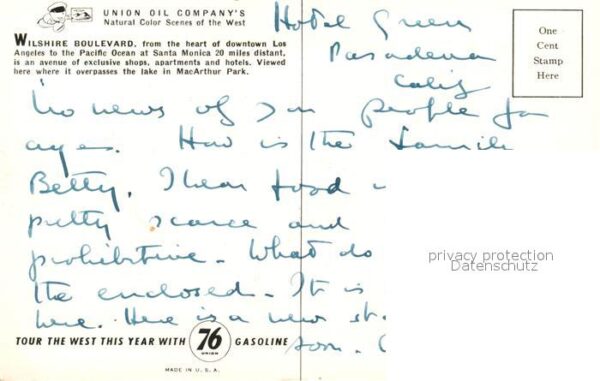 UNION OIL COMPANY'S
Natural Color Scenes of the West
WILSHIRE BOULEVARD, from the heart of downtown Los
Angeles to the Pacific Ocean at Santa Monica 20 miles distant,
is an avenue of exclusive shops, apartments and hotels. Viewed
here where it overpasses the lake in MacArthur Park.
One
Cent
Stamp
Here
Hotel Green
Pasadena
Calif
No news of you people for
ages. How is the
Betty. I hear food
pretty scarce and
prohibitive. What do
the enclosed. It is
here. Here is a new
son.
privacy protection
Datenschutz
TOUR THE WEST THIS YEAR WITH 76 UNION GASOLINE
MADE IN U.S.A.